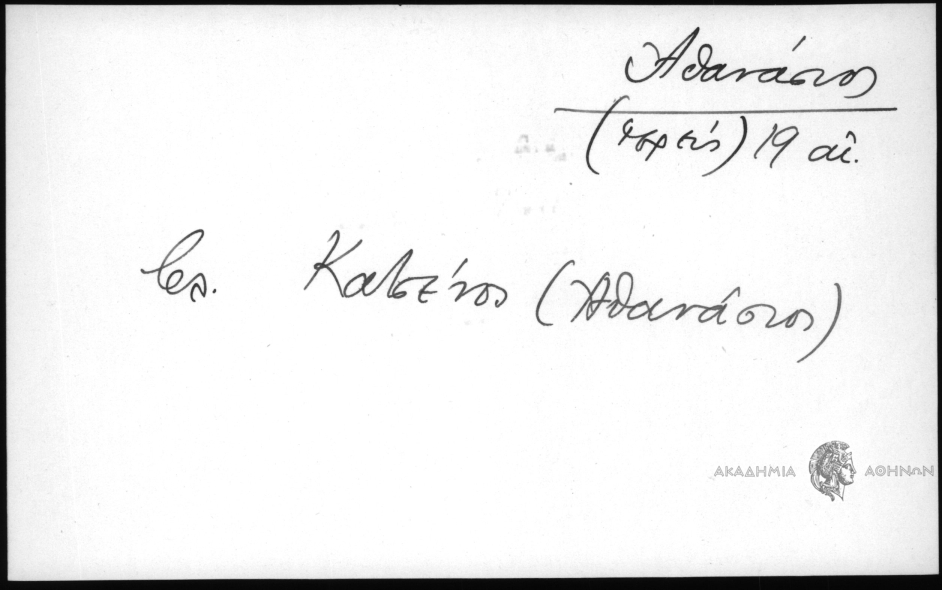 Ἀθανάσιος
(ἱερεύς) 19 αἰ.
βλ. Κατσένος (Ἀθανάσιος)
ΑΚΑΔΗΜΙΑ ΑΘΗΝΩΝ